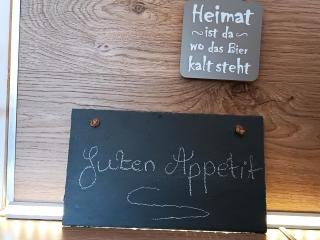 Heimat
~ist da~
wo das Bier
kalt steht
Guten Appetit